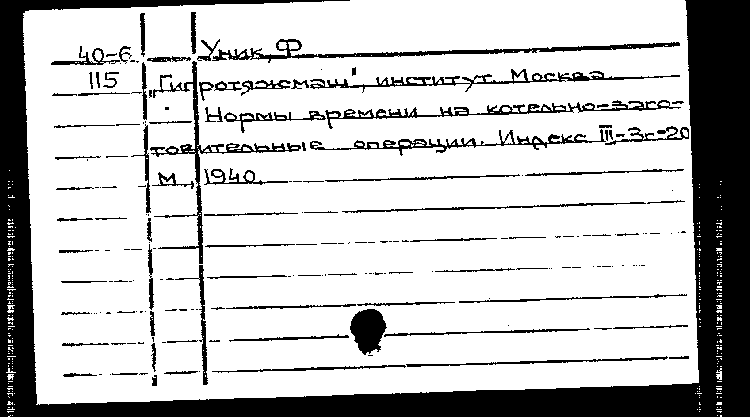 40-6 Уник, Ф
115 „Гипротяжмаш", институт. Москва.
Нормы времени на котельно-заго-
товительные операции. Индекс III-Зг-20
М., 1940.